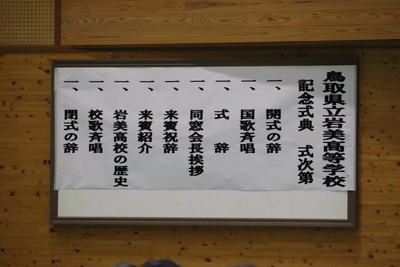 鳥取県立岩美高等学校
記念式典　式次第
一、開式の辞
一、国歌斉唱
一、式　辞
一、同窓会長挨拶
一、来賓祝辞
一、来賓紹介
一、岩美高校の歴史
一、校歌斉唱
一、閉式の辞